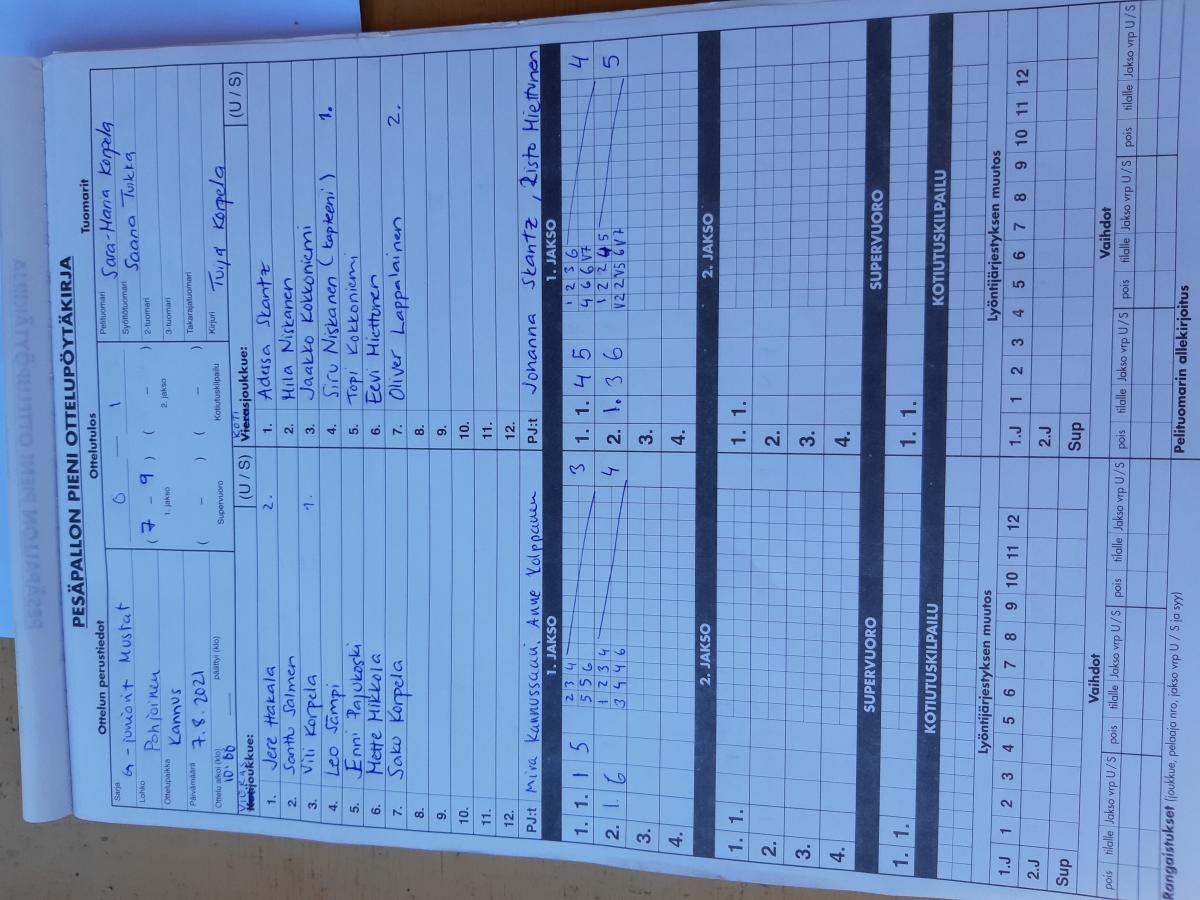 PESÄPALLON PIENI OTTELUPÖYTÄKIRJA
Ottelun perustiedot
Sarja G-juniorit Mustat
Lohko Pohjoinen
Ottelupaikka Kannus
Päivämäärä 7.8.2021
Ottelu alkoi (klo) päättyi (klo)
10:00
Ottelutulos
0 – 1
( 7 – 9 ) ( – )
1. jakso 2. jakso
( – ) ( – )
Supervuoro Kotiutuskilpailu
Tuomarit
Pelituomari Sara-Maria Korpela
Syöttötuomari Saana Tuikka
2-tuomari
3-tuomari
Takarajatuomari
Kirjuri Tuija Korpela
VIERAS
Kotijoukkue: (U / S)
1. Jere Hakala 2.
2. Santtu Salmen
3. Vili Korpela 1.
4. Leo Sämpi
5. Enni Pajukoski
6. Mette Mikkola
7. Saku Korpela
8.
9.
10.
11.
12.
PJ:t Mira Kannussaari, Anne Volppanen
KOTI
Vierasjoukkue: (U / S)
1. Adessa Skantz
2. Mila Niskanen
3. Jaakko Kokkoniemi
4. Siru Niskanen (kapteeni) 1.
5. Topi Kokkoniemi
6. Eevi Miettunen
7. Oliver Lappalainen 2.
8.
9.
10.
11.
12.
PJ:t Johanna Skantz, Risto Miettunen
1. JAKSO
1. 1. 1 5 2 3 4 3
5 5 6
2. 1. 6 1 2 3 4 4
3 4 4 6
3.
4.
1. JAKSO
1. 1. 4 5 1 2 3 6 4
4 6 6 V7
2. 1. 3 6 1 2 2 4 5 5
V2 2 V5 6 V7
3.
4.
2. JAKSO
1. 1.
2.
3.
4.
2. JAKSO
1. 1.
2.
3.
4.
SUPERVUORO
1. 1.
SUPERVUORO
1. 1.
KOTIUTUSKILPAILU
KOTIUTUSKILPAILU
Lyöntijärjestyksen muutos
1.J 1 2 3 4 5 6 7 8 9 10 11 12
2.J
Sup
Lyöntijärjestyksen muutos
1.J 1 2 3 4 5 6 7 8 9 10 11 12
2.J
Sup
Vaihdot
pois tilalle Jakso vrp U/S pois tilalle Jakso vrp U/S pois tilalle Jakso vrp U/S
Vaihdot
pois tilalle Jakso vrp U/S pois tilalle Jakso vrp U/S pois tilalle Jakso vrp U/S
Rangaistukset (joukkue, pelaaja nro, jakso vrp U / S ja syy)
Pelituomarin allekirjoitus